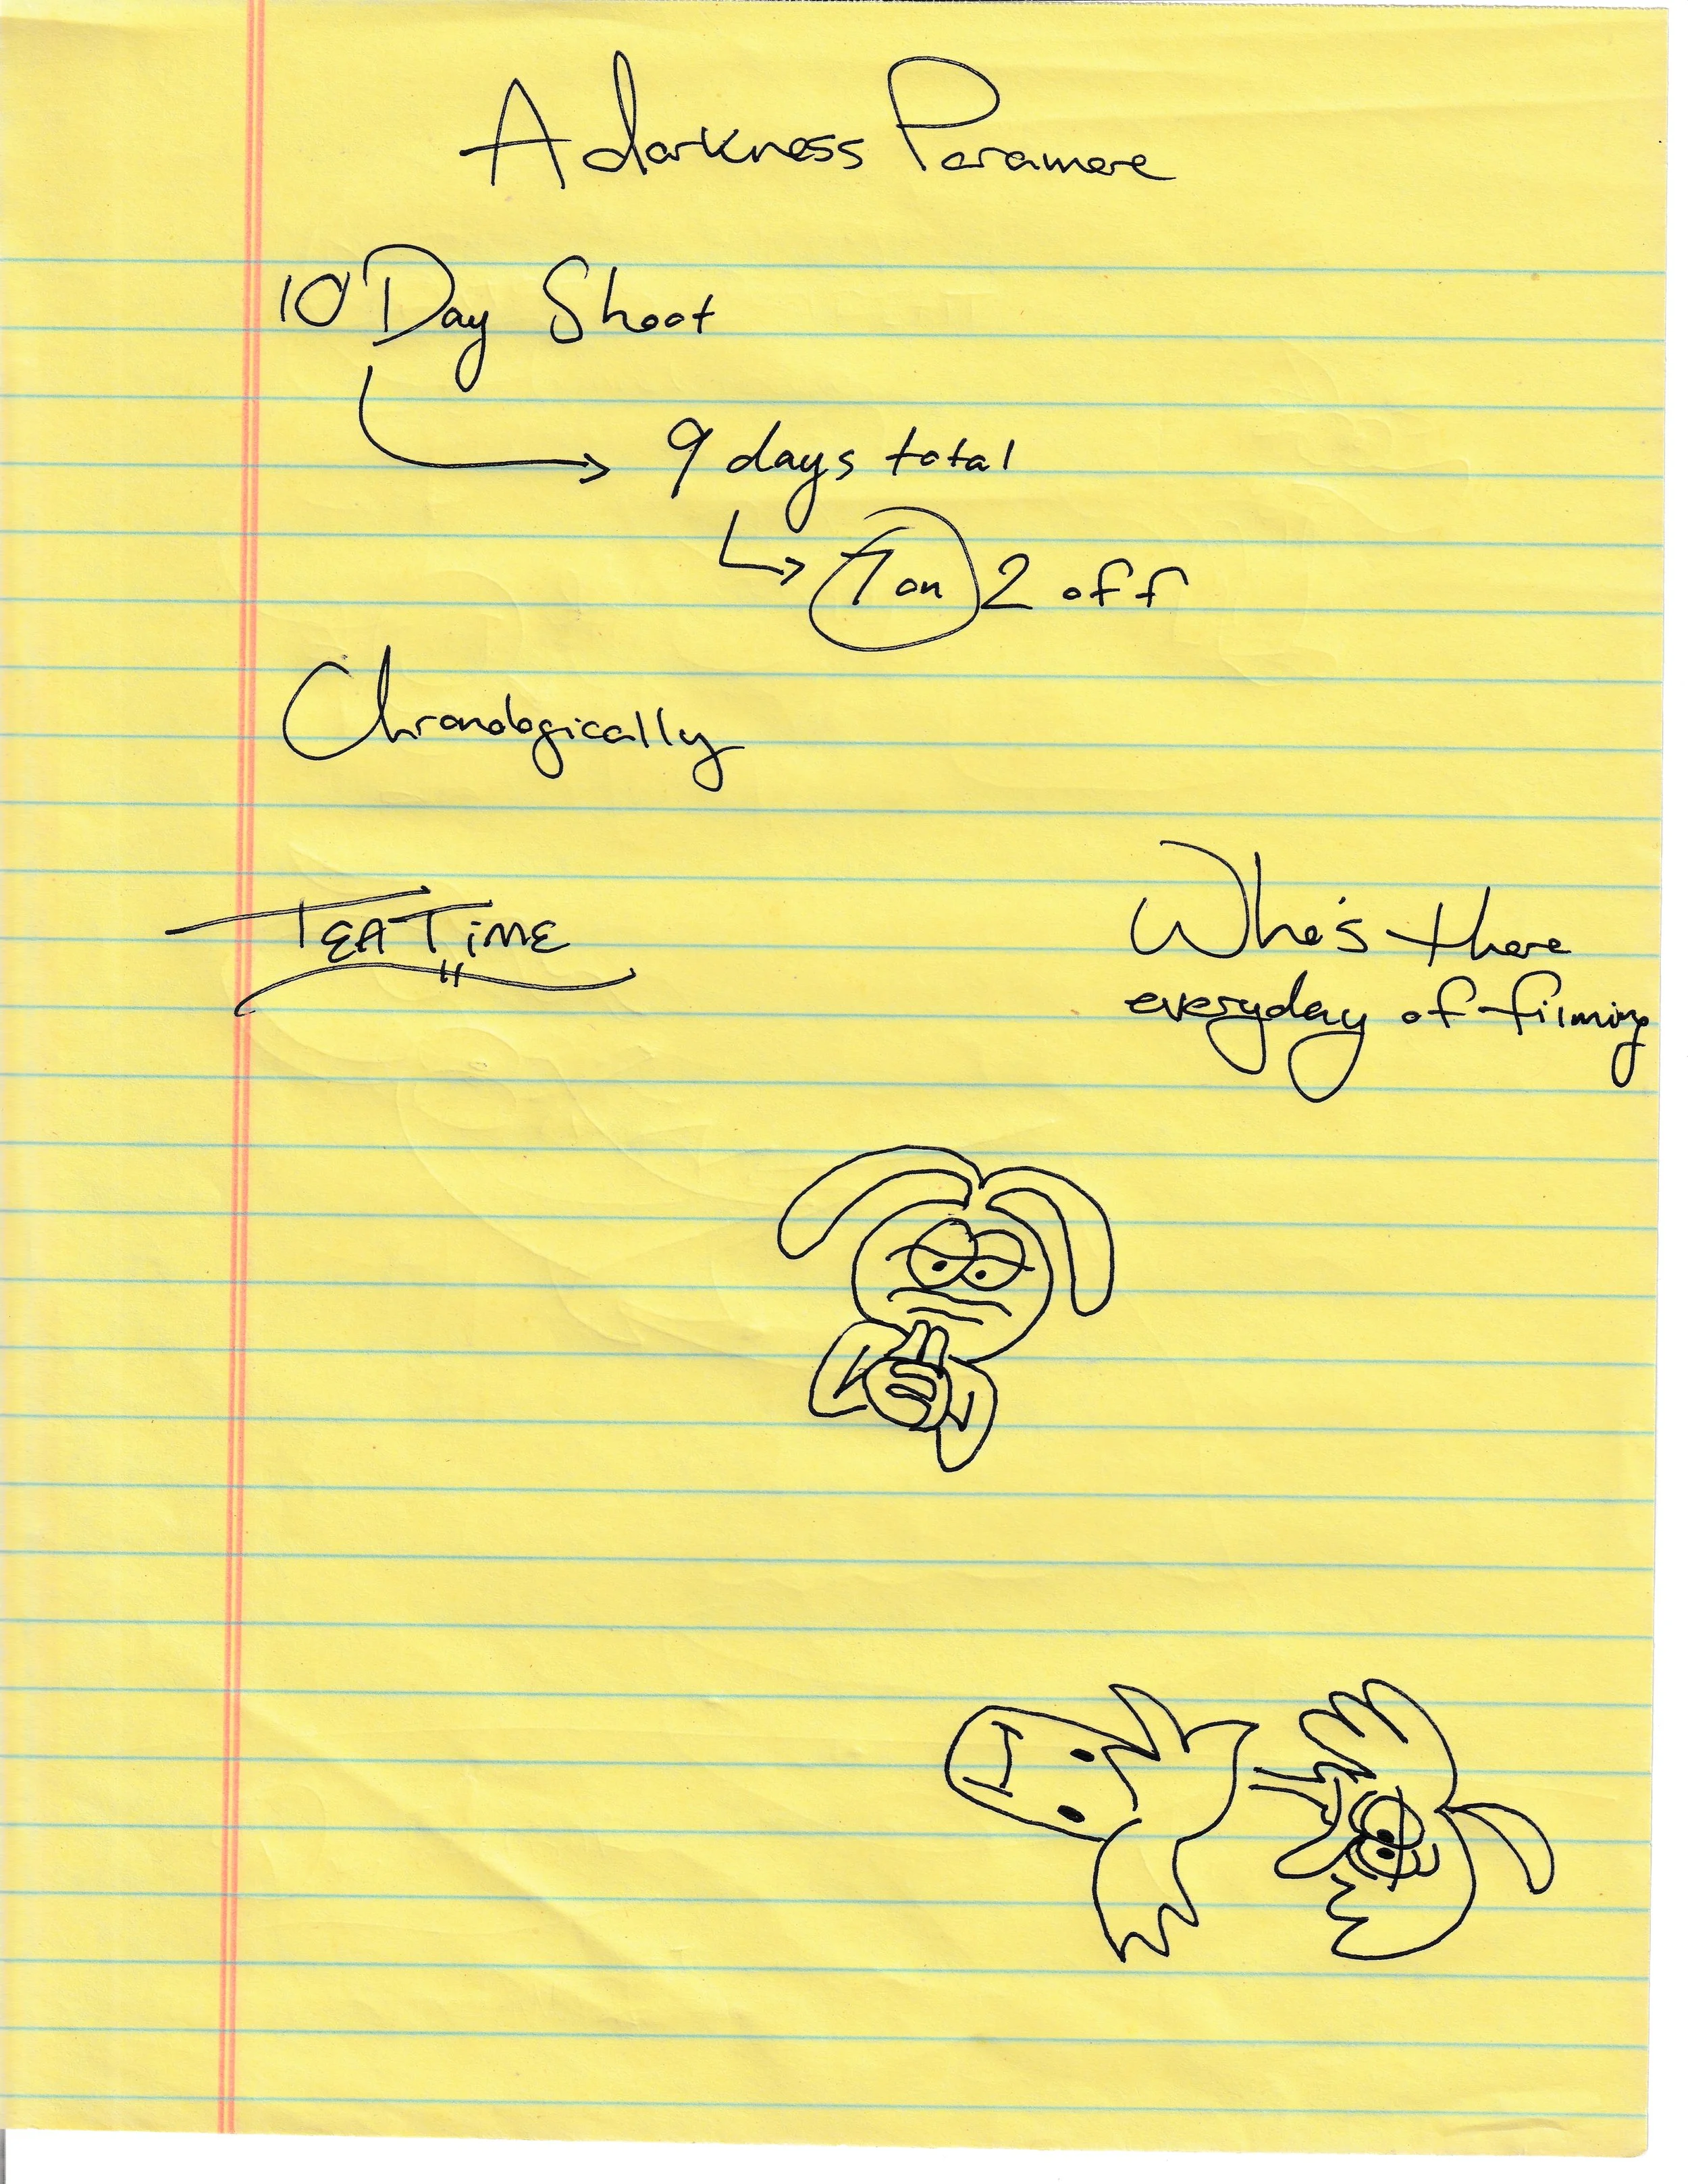 A darkness Paramore
10 Day Shoot
9 days total
7 on 2 off
Chronologically
TEA TiME
Who's there
everyday of filming